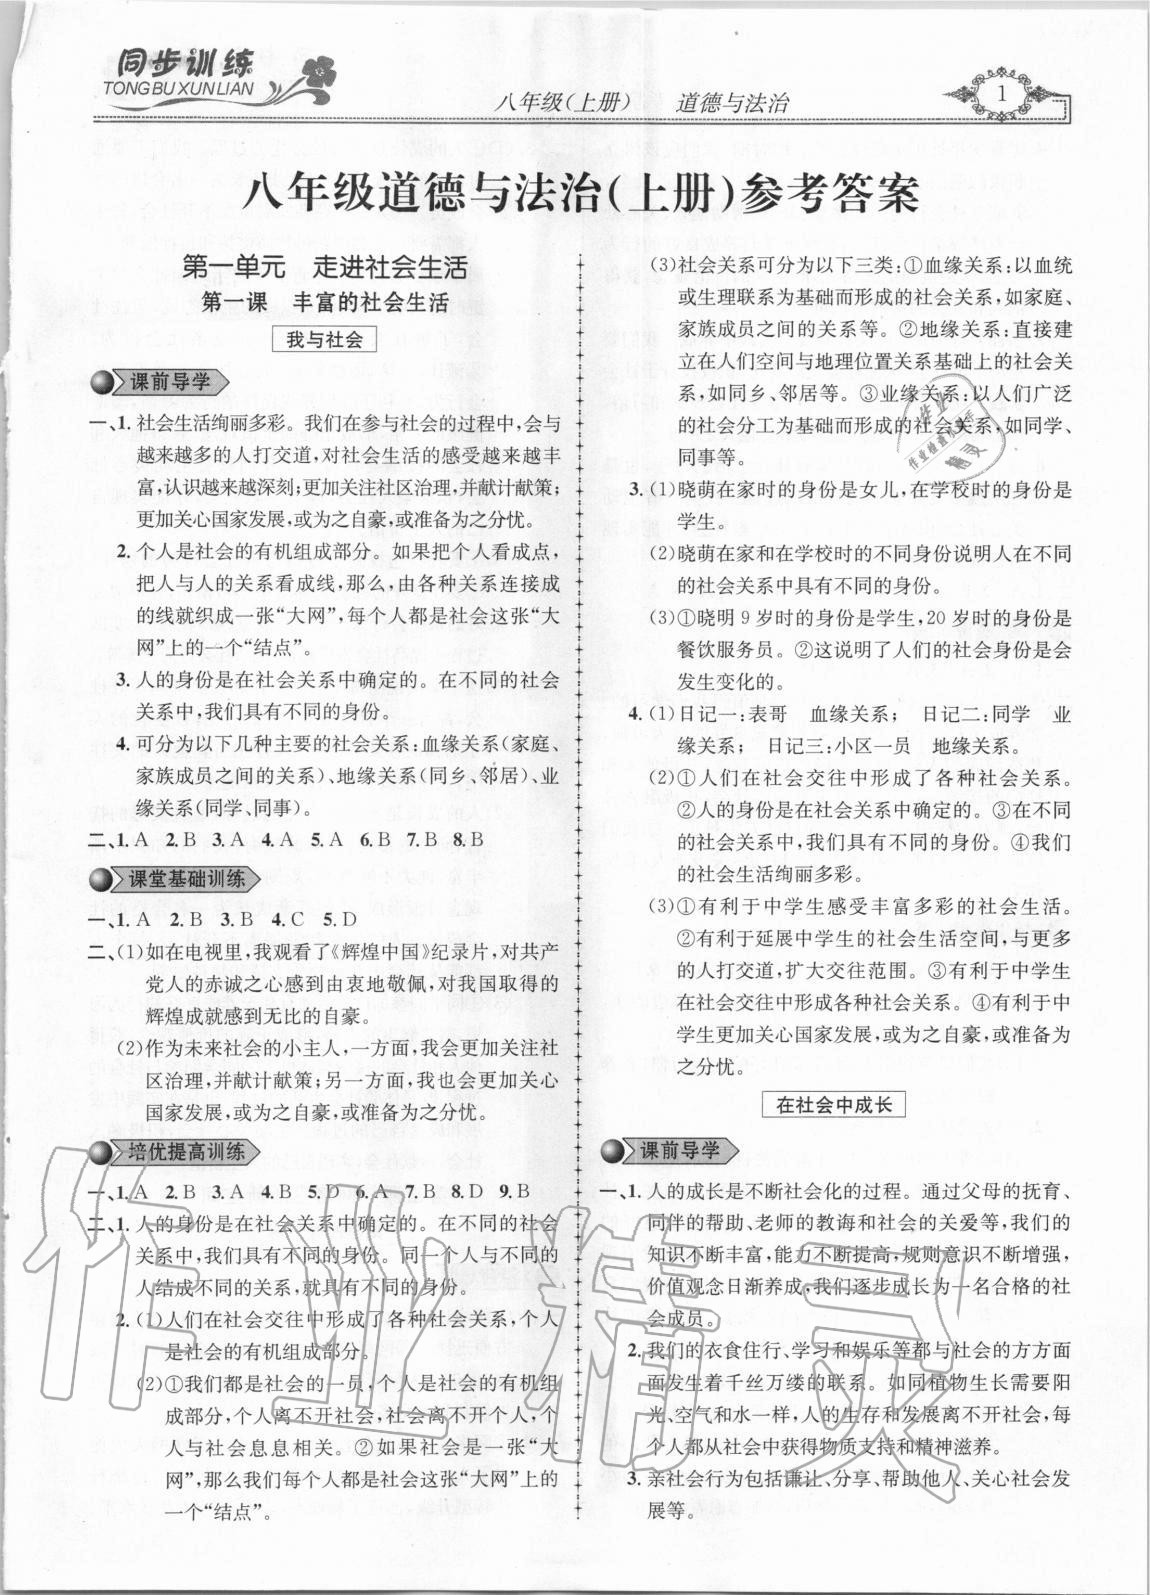 同步训练
TONGBU XUNLIAN
八年级(上册) 道德与法治
1
八年级道德与法治(上册)参考答案
第一单元 走进社会生活
第一课 丰富的社会生活
我与社会
课前导学
一、1. 社会生活绚丽多彩。我们在参与社会的过程中,会与
越来越多的人打交道,对社会生活的感受越来越丰
富,认识越来越深刻;更加关注社区治理,并献计献策;
更加关心国家发展,或为之自豪,或准备为之分忧。
2. 个人是社会的有机组成部分。如果把个人看成点,
把人与人的关系看成线,那么,由各种关系连接成
的线就织成一张“大网”,每个人都是社会这张“大
网”上的一个“结点”。
3. 人的身份是在社会关系中确定的。在不同的社会
关系中,我们具有不同的身份。
4. 可分为以下几种主要的社会关系:血缘关系(家庭、
家族成员之间的关系)、地缘关系(同乡、邻居)、业
缘关系(同学、同事)。
二、1. A 2. B 3. A 4. A 5. A 6. B 7. B 8. B
课堂基础训练
一、1. A 2. B 3. B 4. C 5. D
二、(1)如在电视里,我观看了《辉煌中国》纪录片,对共产
党人的赤诚之心感到由衷地敬佩,对我国取得的
辉煌成就感到无比的自豪。
(2)作为未来社会的小主人,一方面,我会更加关注社
区治理,并献计献策;另一方面,我也会更加关心
国家发展,或为之自豪,或准备为之分忧。
培优提高训练
一、1. A 2. B 3. A 4. B 5. D 6. A 7. B 8. D 9. B
二、1. 人的身份是在社会关系中确定的。在不同的社会
关系中,我们具有不同的身份。同一个人与不同的
人结成不同的关系,就具有不同的身份。
2. (1)人们在社会交往中形成了各种社会关系,个人
是社会的有机组成部分。
(2)①我们都是社会的一员,个人是社会的有机组
成部分,个人离不开社会,社会离不开个人,个
人与社会息息相关。②如果社会是一张“大
网”,那么我们每个人都是社会这张“大网”上的
一个“结点”。
(3)社会关系可分为以下三类:①血缘关系:以血统
或生理联系为基础而形成的社会关系,如家庭、
家族成员之间的关系等。②地缘关系:直接建
立在人们空间与地理位置关系基础上的社会关
系,如同乡、邻居等。③业缘关系:以人们广泛
的社会分工为基础而形成的社会关系,如同学、
同事等。
3. (1)晓萌在家时的身份是女儿,在学校时的身份是
学生。
(2)晓萌在家和在学校时的不同身份说明人在不同
的社会关系中具有不同的身份。
(3)①晓明 9 岁时的身份是学生,20 岁时的身份是
餐饮服务员。②这说明了人们的社会身份是会
发生变化的。
4. (1)日记一:表哥 血缘关系; 日记二:同学 业
缘关系; 日记三:小区一员 地缘关系。
(2)①人们在社会交往中形成了各种社会关系。
②人的身份是在社会关系中确定的。③在不同
的社会关系中,我们具有不同的身份。④我们
的社会生活绚丽多彩。
(3)①有利于中学生感受丰富多彩的社会生活。
②有利于延展中学生的社会生活空间,与更多
的人打交道,扩大交往范围。③有利于中学生
在社会交往中形成各种社会关系。④有利于中
学生更加关心国家发展,或为之自豪,或准备为
之分忧。
在社会中成长
课前导学
一、1. 人的成长是不断社会化的过程。通过父母的抚育、
同伴的帮助、老师的教诲和社会的关爱等,我们的
知识不断丰富,能力不断提高,规则意识不断增强,
价值观念日渐养成,我们逐步成长为一名合格的社
会成员。
2. 我们的衣食住行、学习和娱乐等都与社会的方方面
面发生着千丝万缕的联系。如同植物生长需要阳
光、空气和水一样,人的生存和发展离不开社会,每
个人都从社会中获得物质支持和精神滋养。
3. 亲社会行为包括谦让、分享、帮助他人、关心社会发
展等。
作业精灵